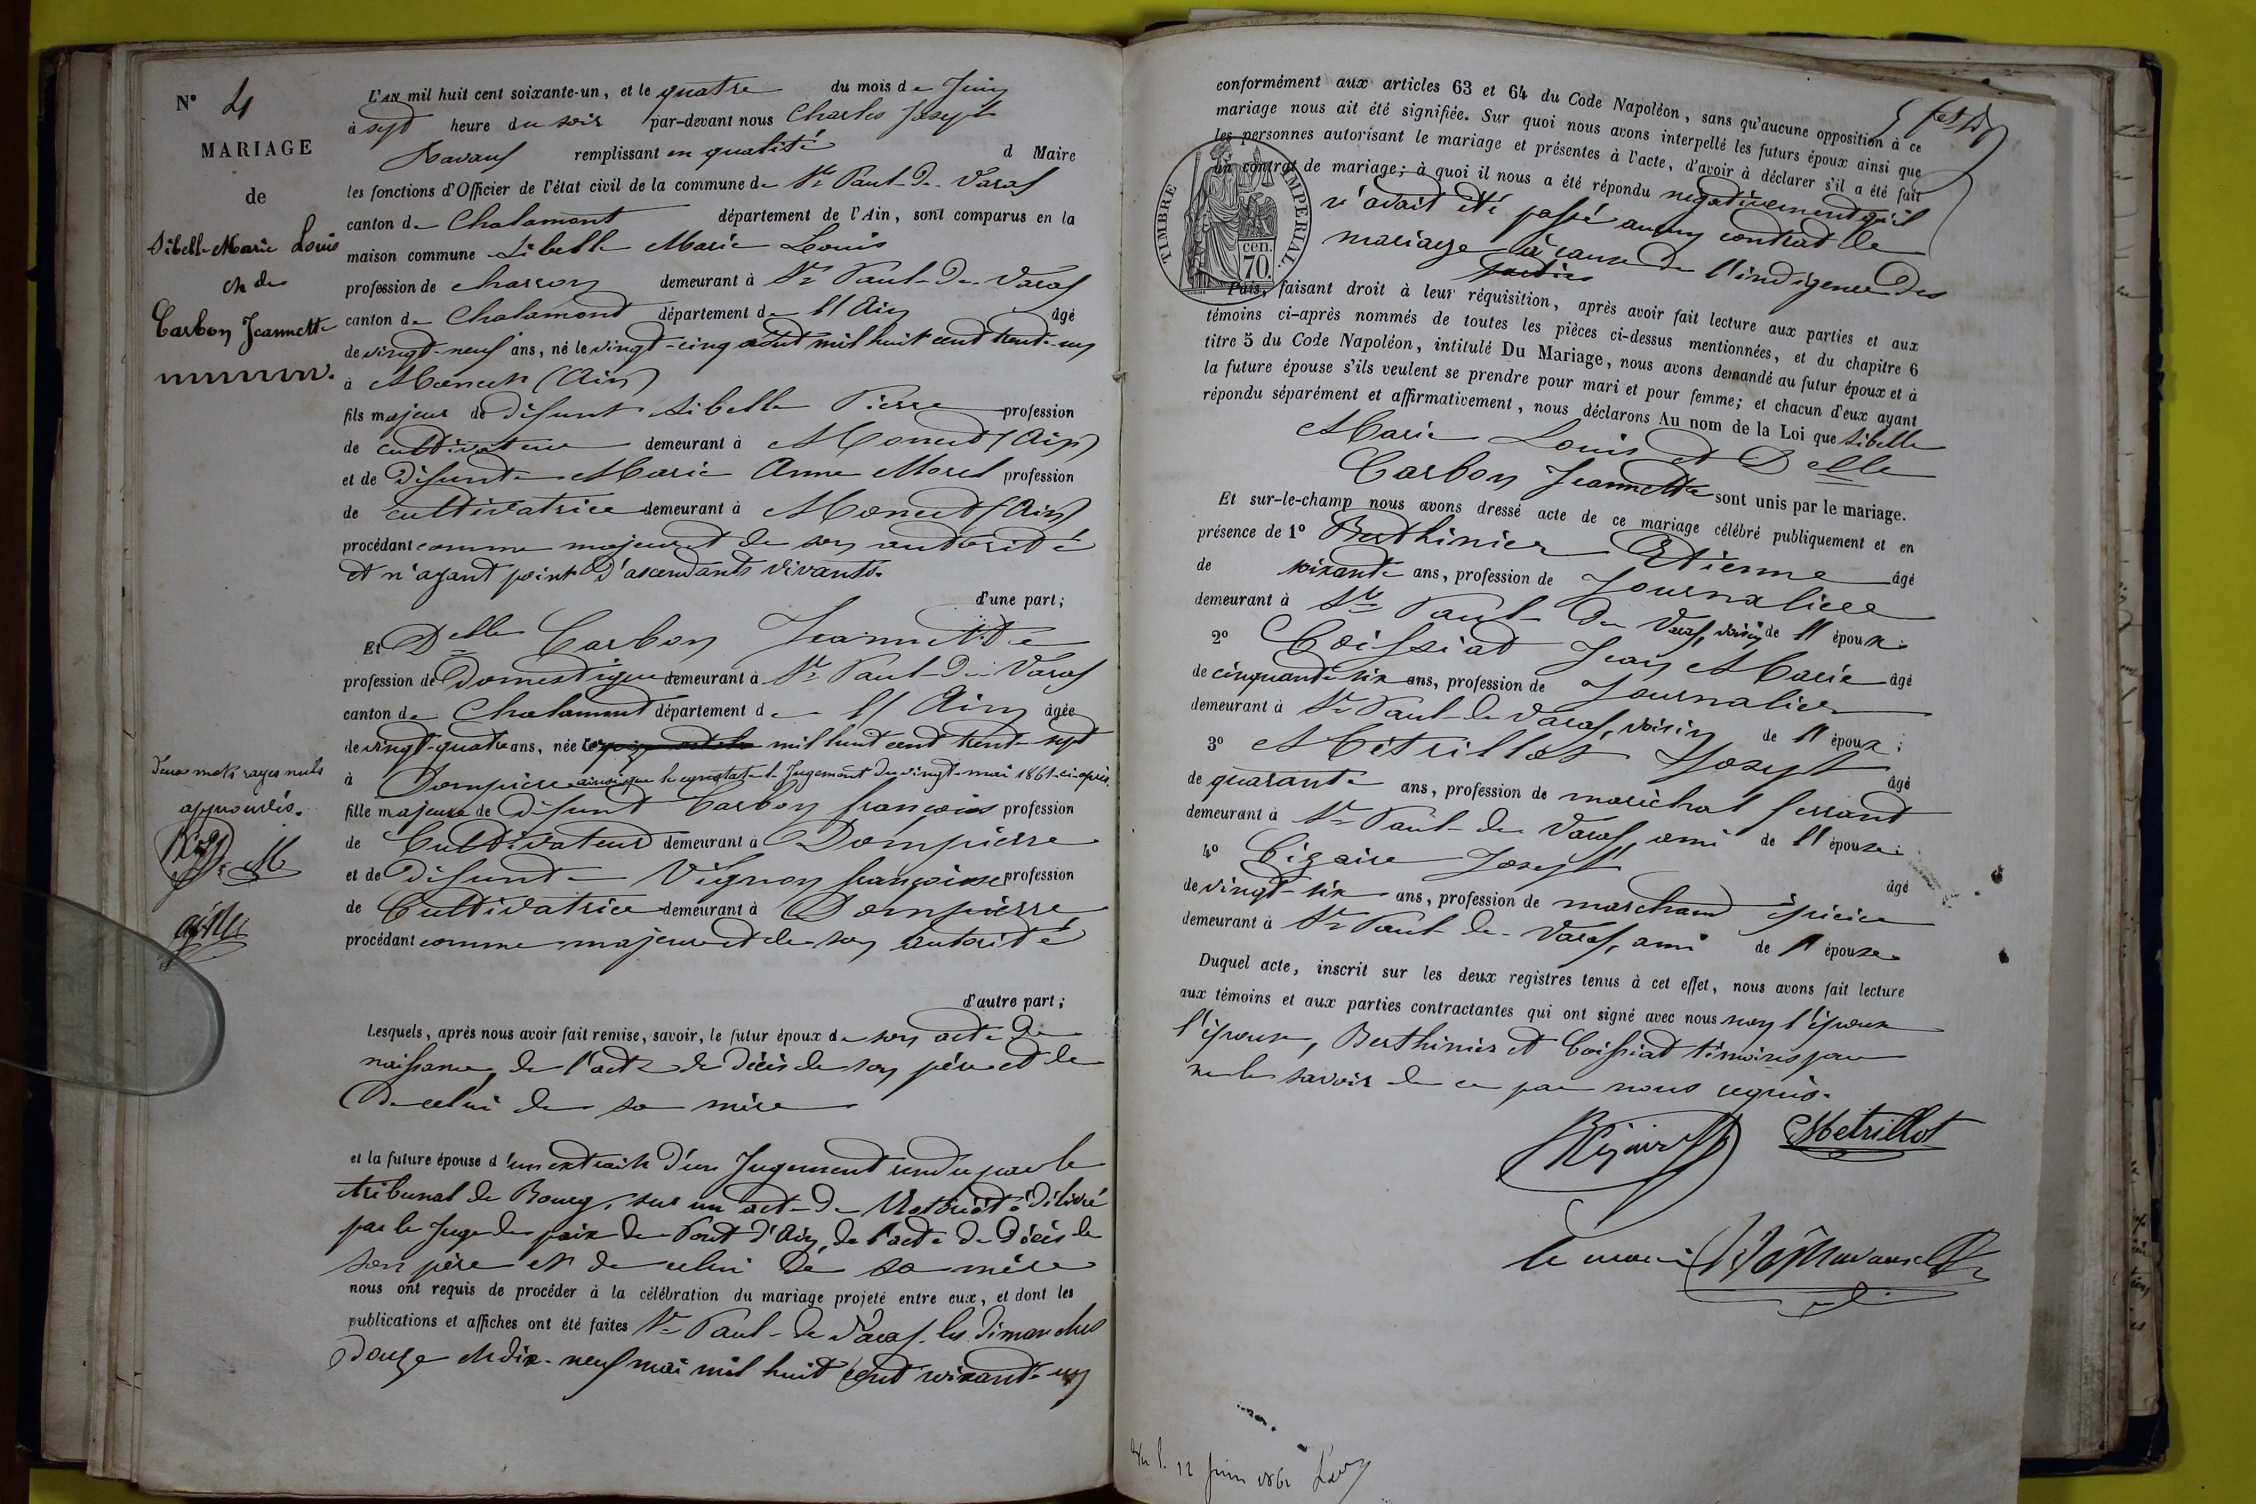 N° 4
MARIAGE
de
Sibelle Marie Louis
et de
Carbon Jeannette
Deux mots rayés nuls
approuvés.
L'AN mil huit cent soixante-un, et le quatre du mois de Juin
à sept heure du soir par-devant nous Charles Joseph
Ravaus remplissant en qualité d Maire
les fonctions d'Officier de l'état civil de la commune de St Paul-de-Varax
canton de Chalamont département de l'Ain, sont comparus en la
maison commune Sibelle Marie Louis
profession de charron demeurant à St Paul-de-Varax
canton de Chalamont département de l'Ain âgé
de vingt-neuf ans, né le vingt-cinq août mil huit cent trente-un
à (Ain)
fils majeur de défunt Sibelle Pierre profession
de cultivateur demeurant à (Ain)
et de Défunte Marie Anne Morel profession
de cultivatrice demeurant à (Ain)
procédant comme majeur et de son autorité
et n'ayant point d'ascendants vivants.
d'une part;
Et Delle Carbon Jeannette
profession de Domestique demeurant à St Paul-de-Varax
canton de Chalamont département de l'Ain âgée
de vingt-quatre ans, née le mil huit cent trente-sept
à Dompierre ainsi que le constate le Jugement du vingt-mai 1861 ci-après.
fille majeure de défunt Carbon françois profession
de Cultivateur demeurant à Dompierre
et de Défunte Vignon françoise profession
de Cultivatrice demeurant à Dompierre
procédant comme majeure et de son autorité
d'autre part;
Lesquels, après nous avoir fait remise, savoir, le futur époux de son acte de
naissance, de l'acte de décès de son père et de
De celui de sa mère
et la future épouse d'un extrait d'un Jugement rendu par le
tribunal de Bourg, sur un acte de Notoriété délivré
par le Juge de paix de Pont d'Ain, de l'acte de Décès de
son père et de celui de sa mère
nous ont requis de procéder à la célébration du mariage projeté entre eux, et dont les
publications et affiches ont été faites St Paul-de Varax les dimanches
douze et dix-neuf mai mil huit cent soixante-un
conformément aux articles 63 et 64 du Code Napoléon, sans qu'aucune opposition à ce
mariage nous ait été signifiée. Sur quoi nous avons interpellé les futurs époux ainsi que
les personnes autorisant le mariage et présentes à l'acte, d'avoir à déclarer s'il a été fait
un contrat de mariage; à quoi il nous a été répondu négativement qu'il
n'avait été passé aucun contrat de
mariage à cause de l'indigence des
parties
TIMBRE IMPÉRIAL.
cen.
70.
Puis, faisant droit à leur réquisition, après avoir fait lecture aux parties et aux
témoins ci-après nommés de toutes les pièces ci-dessus mentionnées, et du chapitre 6
titre 5 du Code Napoléon, intitulé Du Mariage, nous avons demandé au futur époux et à
la future épouse s'ils veulent se prendre pour mari et pour femme; et chacun d'eux ayant
répondu séparément et affirmativement, nous déclarons Au nom de la Loi que Sibelle
Marie Louis et Delle
Carbon Jeannette sont unis par le mariage.
Et sur-le-champ nous avons dressé acte de ce mariage célébré publiquement et en
présence de 1° Berthinier Etienne âgé
de soixante ans, profession de Journalier
demeurant à St Paul de Varax, voisin de l'époux;
2° Coissiat Jean Marie âgé
de cinquante-six ans, profession de Journalier
demeurant à St Paul-de Varax, voisin de l'époux;
3° Métrillot Joseph âgé
de quarante ans, profession de maréchal ferrant
demeurant à St Paul-de Varax, ami de l'épouse;
4° Joseph âgé
de vingt-six ans, profession de marchand épicier
demeurant à St Paul-de-Varax, ami de l'épouse
Duquel acte, inscrit sur les deux registres tenus à cet effet, nous avons fait lecture
aux témoins et aux parties contractantes qui ont signé avec nous non l'époux
l'épouse, Berthinier et Coissiat témoins pour
ne le savoir de ce par nous requis.
Métrillot
le maire
12 Juin 1861